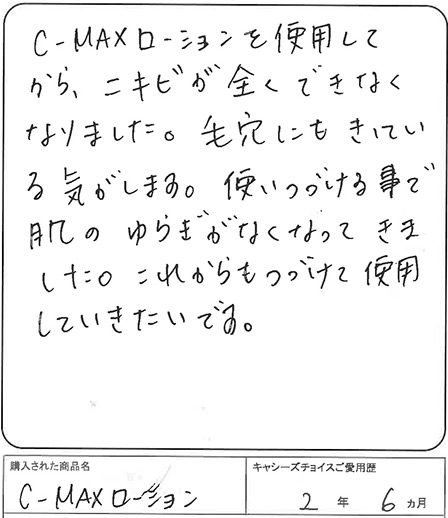 C-MAXローションを使用して
から、ニキビが全くできなく
なりました。毛穴にもきいてい
る気がします。使いつづける事で
肌のゆらぎがなくなってきま
した。これからもつづけて使用
していきたいです。
購入された商品名
キャシーズチョイスご愛用歴
C-MAXローション
2年6ヵ月